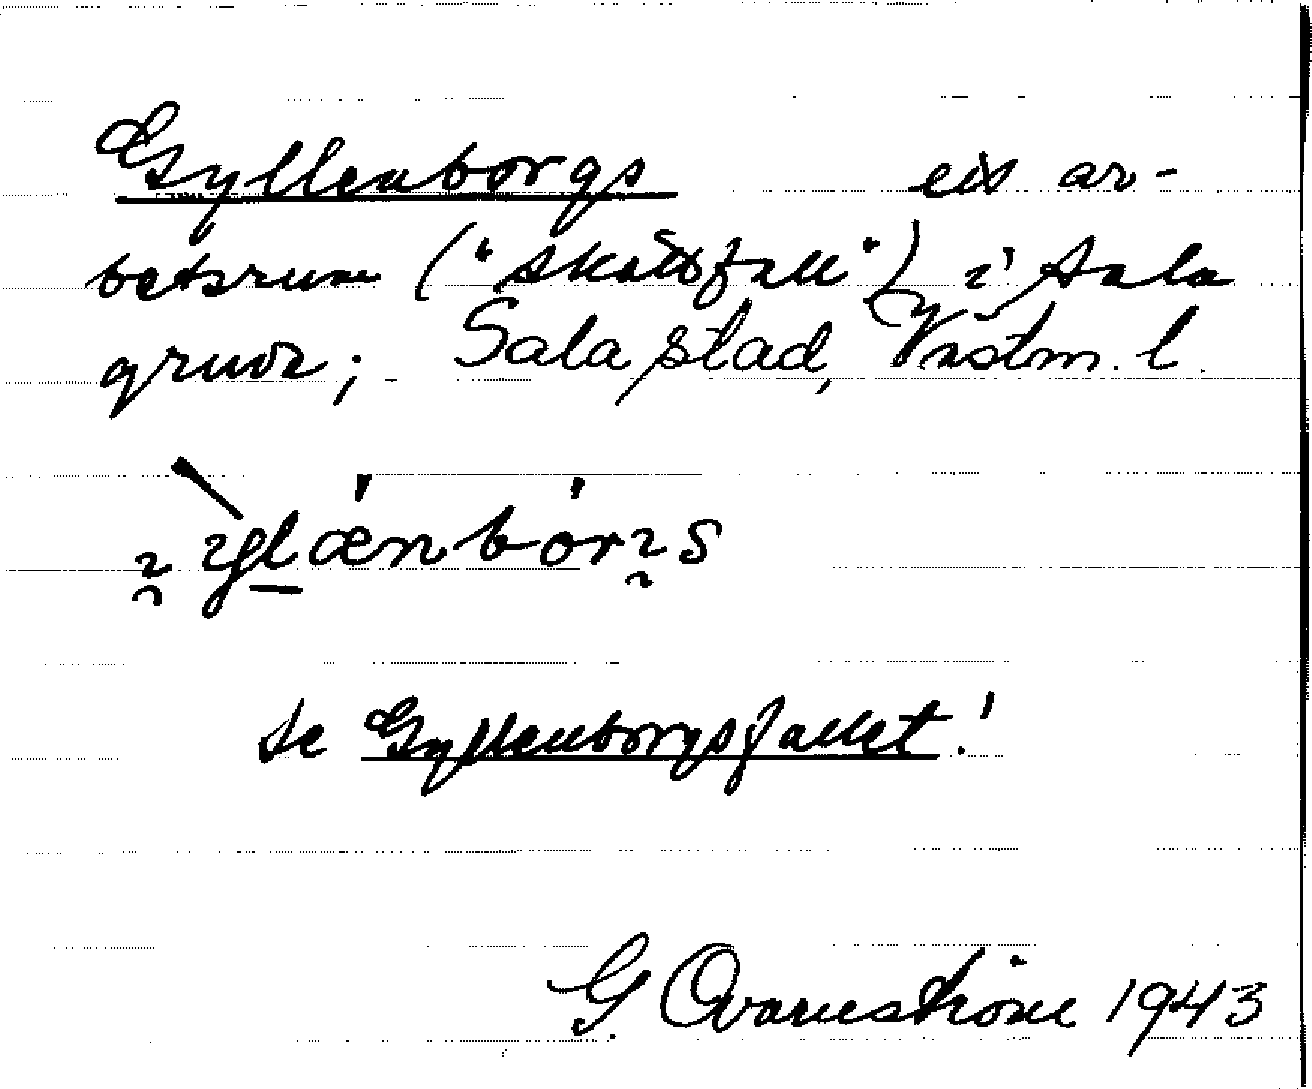 Gyllenborgs ett ar-
betsrum ("skattfall") i Sala
gruva; Sala stad, Västm. l.
se Gyllenborgsfallet!
G. Qvarnström 1943